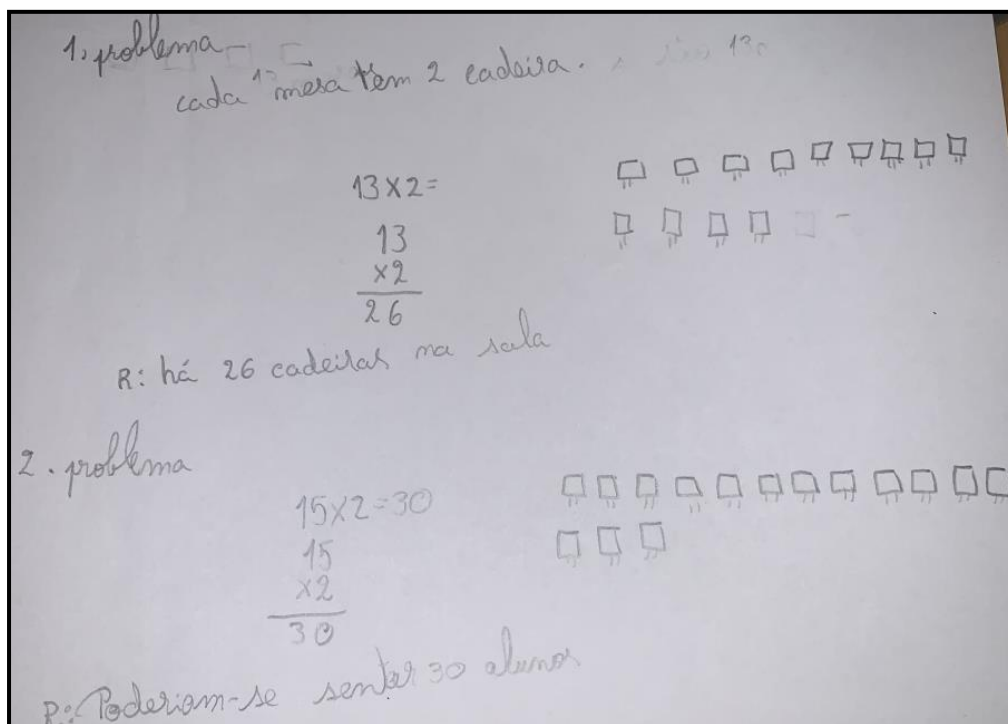 1. problema
cada mesa têm 2 cadeira.
13x2=
13
x2
26
R: há 26 cadeiras na sala
2. problema
15x2=30
15
x2
30
R: Poderiam-se sentar 30 alunos